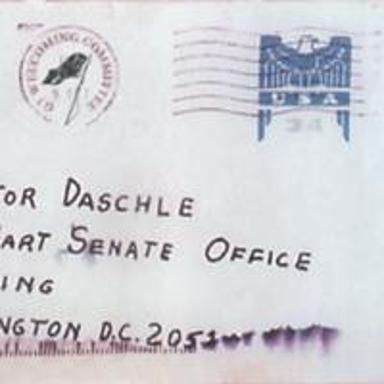 WELCOMING COMMITTEE
USA
34
TOR DASCHLE
ART SENATE OFFICE
ING
NGTON D.C. 2051